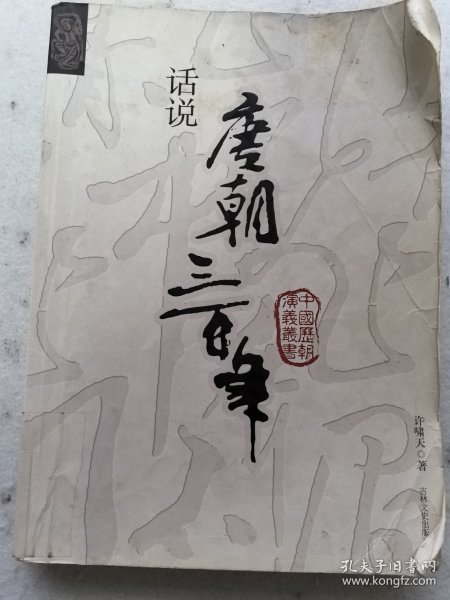 话说
唐朝三百年
中國歷朝
演義叢書
许啸天◎著
吉林文史出版
孔夫子旧书网
www.kongfz.com